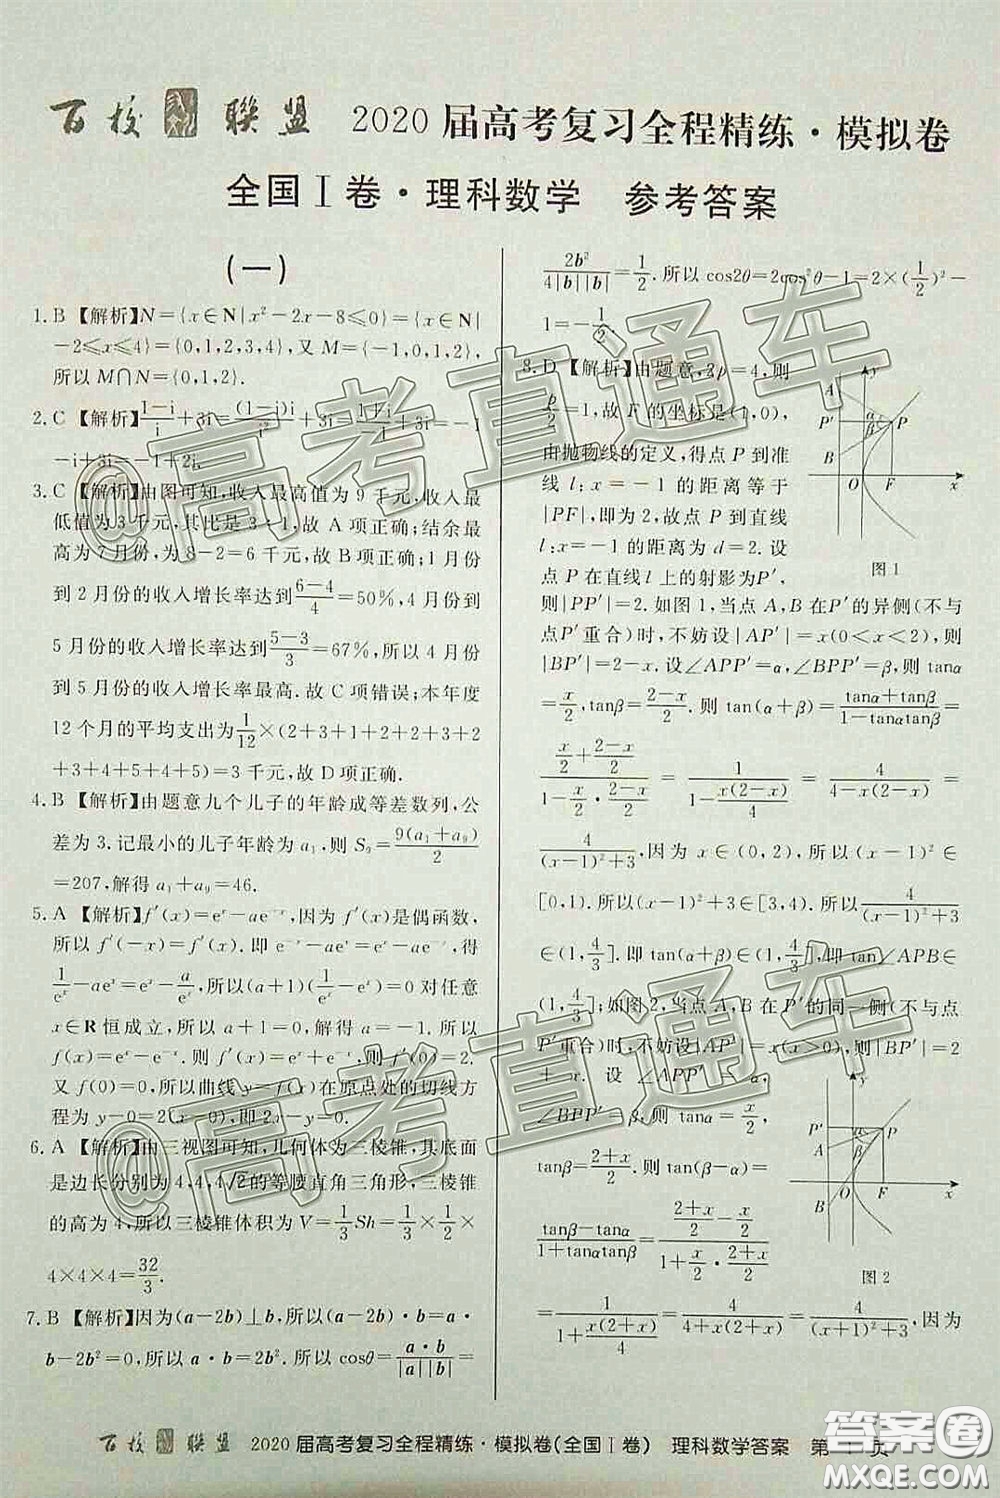 百校联盟 2020届高考复习全程精练·模拟卷
全国Ⅰ卷·理科数学 参考答案
(一)
1. B 【解析】N={x∈N|x²-2x-8≤0}={x∈N|
-2≤x≤4}={0,1,2,3,4},又M={-1,0,1,2},
所以M∩N={0,1,2}.
2. C 【解析】(1-i)/i+3i=(1-i)i/i²+3i=(1+i)/(-1)+3i=-1
-i+3i=-1+2i.
3. C 【解析】由图可知,收入最高值为9千元,收入最
低值为3千元,其比是3:1,故A项正确;结余最
高为7月份,为8-2=6千元,故B项正确;1月份
到2月份的收入增长率达到(6-4)/4=50%,4月份到
5月份的收入增长率达到(5-3)/3=67%,所以4月份
到5月份的收入增长率最高.故C项错误;本年度
12个月的平均支出为1/12×(2+3+1+2+2+3+2
+3+4+5+4+5)=3千元,故D项正确.
4. B 【解析】由题意九个儿子的年龄成等差数列,公
差为3.记最小的儿子年龄为a₁,则S₉=9(a₁+a₉)/2
=207,解得a₁+a₉=46.
5. A 【解析】f′(x)=eˣ-ae⁻ˣ,因为f′(x)是偶函数,
所以f′(-x)=f′(x).即e⁻ˣ-aeˣ=eˣ-ae⁻ˣ,得
1/eˣ-aeˣ=eˣ-a/eˣ,所以(a+1)(eˣ-1/eˣ)=0对任意
x∈R恒成立,所以a+1=0,解得a=-1.所以
f(x)=eˣ-e⁻ˣ.则f′(x)=eˣ+e⁻ˣ.则f′(0)=2.
又f(0)=0,所以曲线y=f(x)在原点处的切线方
程为y-0=2(x-0),即2x-y=0.
6. A 【解析】由三视图可知,几何体为三棱锥,其底面
是边长分别为4,4,4√2的等腰直角三角形,三棱锥
的高为4,所以三棱锥体积为V=1/3Sh=1/3×1/2×
4×4×4=32/3.
7. B 【解析】因为(a-2b)⊥b,所以(a-2b)·b=a·
b-2b²=0,所以a·b=2b².所以cosθ=a·b/|a||b|=
2b²/4|b||b|=1/2.所以cos2θ=2cos²θ-1=2×(1/2)²-
1=-1/2.
8. D 【解析】由题意,2p=4,则
p/2=1,故F的坐标是(1,0),
由抛物线的定义,得点P到准
线l:x=-1的距离等于
|PF|,即为2,故点P到直线
l:x=-1的距离为d=2.设
点P在直线l上的射影为P′,
y
P′
α
β
P
B
O
F
x
图1
则|PP′|=2.如图1,当点A,B在P′的异侧(不与
点P′重合)时,不妨设|AP′|=x(0<x<2),则
|BP′|=2-x.设∠APP′=α,∠BPP′=β,则tanα=
x/2,tanβ=(2-x)/2.则tan(α+β)=(tanα+tanβ)/(1-tanαtanβ)=
(x/2+(2-x)/2)/(1-x/2·(2-x)/2)=1/(1-x(2-x)/4)=4/(4-x(2-x))=
4/((x-1)²+3),因为x∈(0,2),所以(x-1)²∈
[0,1).所以(x-1)²+3∈[3,4).所以4/((x-1)²+3)
∈(1,4/3].即tan(α+β)∈(1,4/3],即tan∠APB∈
(1,4/3];如图2,当点A,B在P′的同一侧(不与点
P′重合)时,不妨设|AP′|=x(x>0),则|BP′|=2
+x.设∠APP′=α,
∠BPP′=β,则tanα=x/2,
tanβ=(2+x)/2.则tan(β-α)=
(tanβ-tanα)/(1+tanαtanβ)=((2+x)/2-x/2)/(1+x/2·(2+x)/2)
y
P′
P
B
O
F
x
图2
=1/(1+x(2+x)/4)=4/(4+x(2+x))=4/((x+1)²+3),因为
百校联盟 2020届高考复习全程精练·模拟卷(全国Ⅰ卷) 理科数学答案 第1页
@高考直通车
@高考直通车
答案圈
MXQE.COM